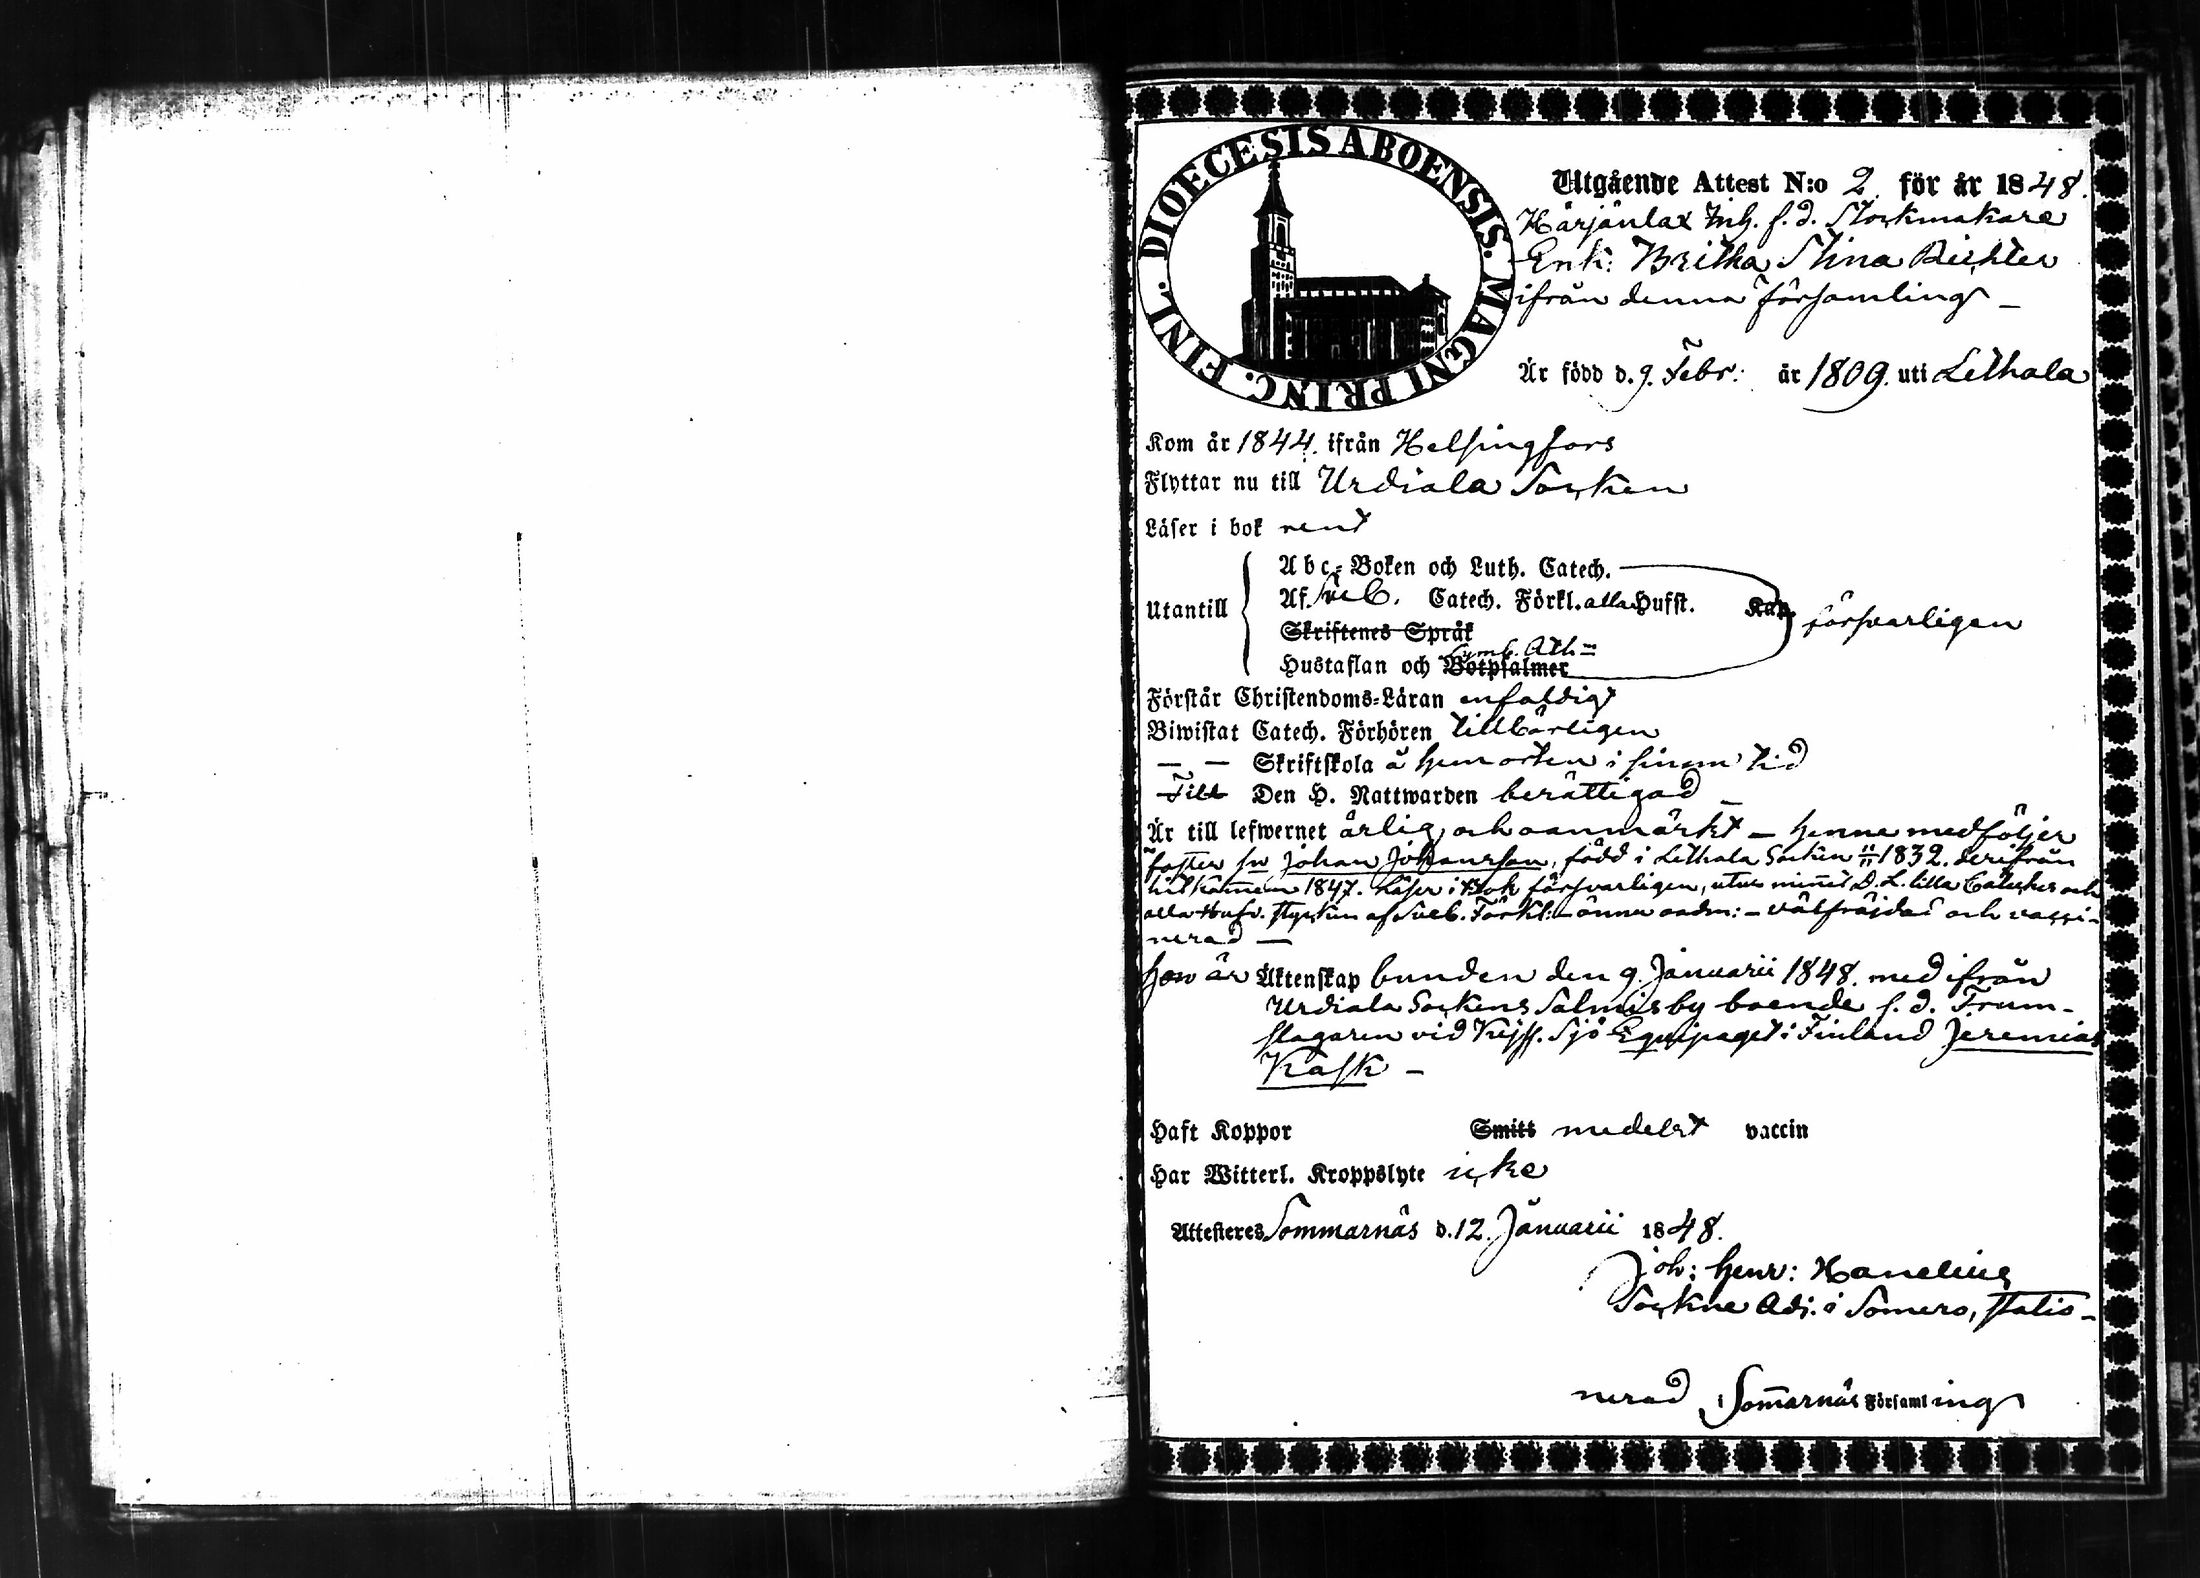 DIOECESIS ABOENSIS. MAGNI PRINC. FINL.
Utgående Attest N:o 2. för år 1848.
Härjänlax Inh. f. d. Stockmakare
Enk: Britha Stina Richter
ifrån denna församling –
Är född d. 9. Febr: år 1809. uti Lethala
Kom år 1844. ifrån Helsingfors
Flyttar nu till Urdiala Socken
Läser i bok rent
Utantill
Abc-Boken och Luth. Catech.
Af Sveb. Catech. Förkl. alla Hufst. Kap. försvarligen
Skriftenes Språk
Symb. Ath=
Hustaflan och Botpsalmer
Förstår Christendoms-Läran enfaldigt
Biwistat Catech. Förhören tillbörligen
— — Skriftskola å hemorten i sinom tid
Till Den H. Nattwarden berättigad –
Är till lefwernet ärlig och oanmärkt – henne medföljer
foster sn Johan Johansson, född i Lethala Socken 1832. derifrån
hitkommen 1847. Läser i Bok försvarligen, utur minnet D. L. lilla Cateches och
alla Hufv. stycken af Sveb. Förkl: – ännu oadm: – välfräjdad och vacci-
nerad —
Hon är Äktenskap bunden den 9. Januarii 1848. med ifrån
Urdiala Sockens Salmis by boende f. d. Trum-
slagaren vid Kejs. Sjö Equipaget i Finland Jeremias
Kask –
Haft Koppor Smitt medelst vaccin
Har Witterl. Kroppslyte icke
Attesteres Sommarnäs d. 12. Januarii 1848.
Joh: Henr: Hanelius
Sockne Adj. i Somero, statio-
nerad i Som̄arnäs Församling